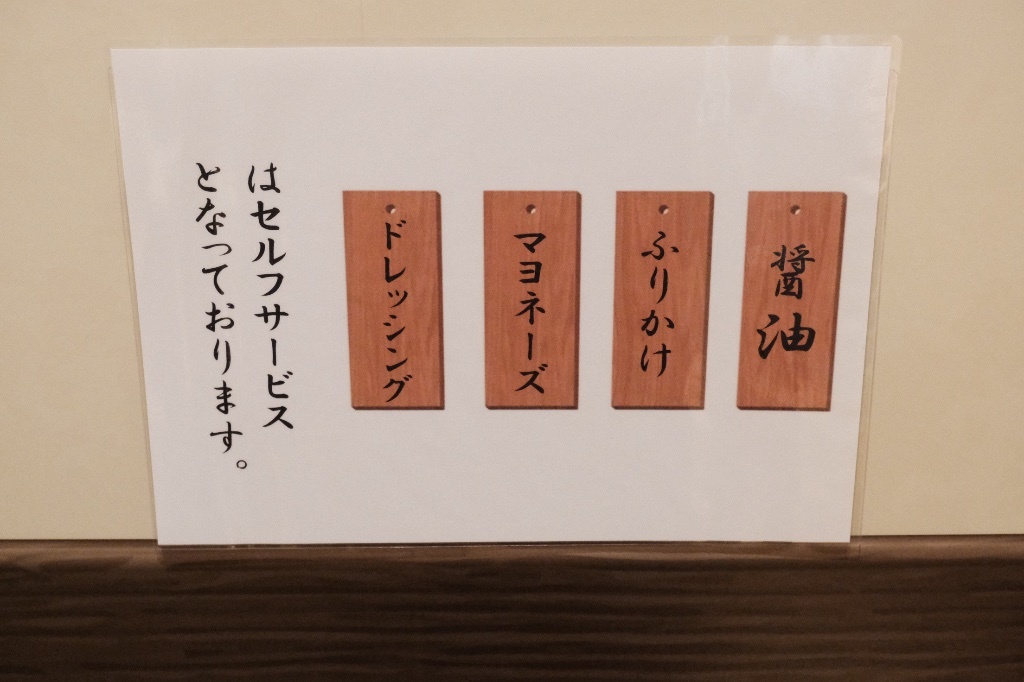 醤油
ふりかけ
マヨネーズ
ドレッシング
はセルフサービス
となっております。